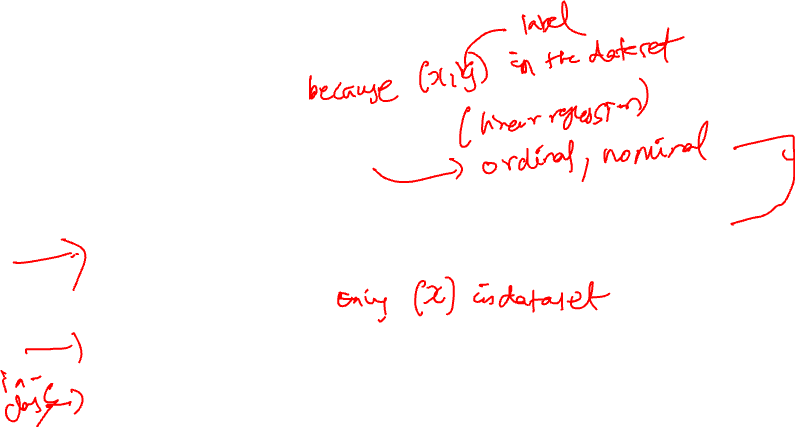 label
because (x, y) in the dataset
(linear regression)
ordinal, nominal
only (x) is dataset
in-